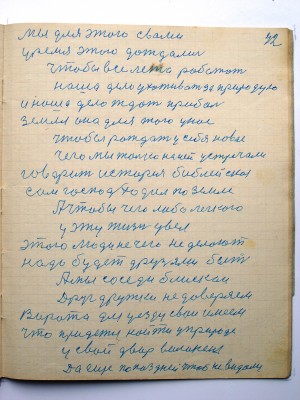 мы для этого свами
42
время этого дождами
чтобы все лета работат
наша дело ухаживат за природую
и наша дело ждат прибал
земля она для этого
чтобы рождат у себя новое
чего мы только на ней устречали
говорит история библейская
сам господ ходил по земле
А чтобы чего либо легкого
у эту жизн увел
этого люди нечего не делоют
надо будет друзями быт
А мы соседи блискаи
Друг дружки не доверяем
Варота для уезду сваи имеем
что придется найти у природе
у свой двар
Да еще попаздней чтоб не видали